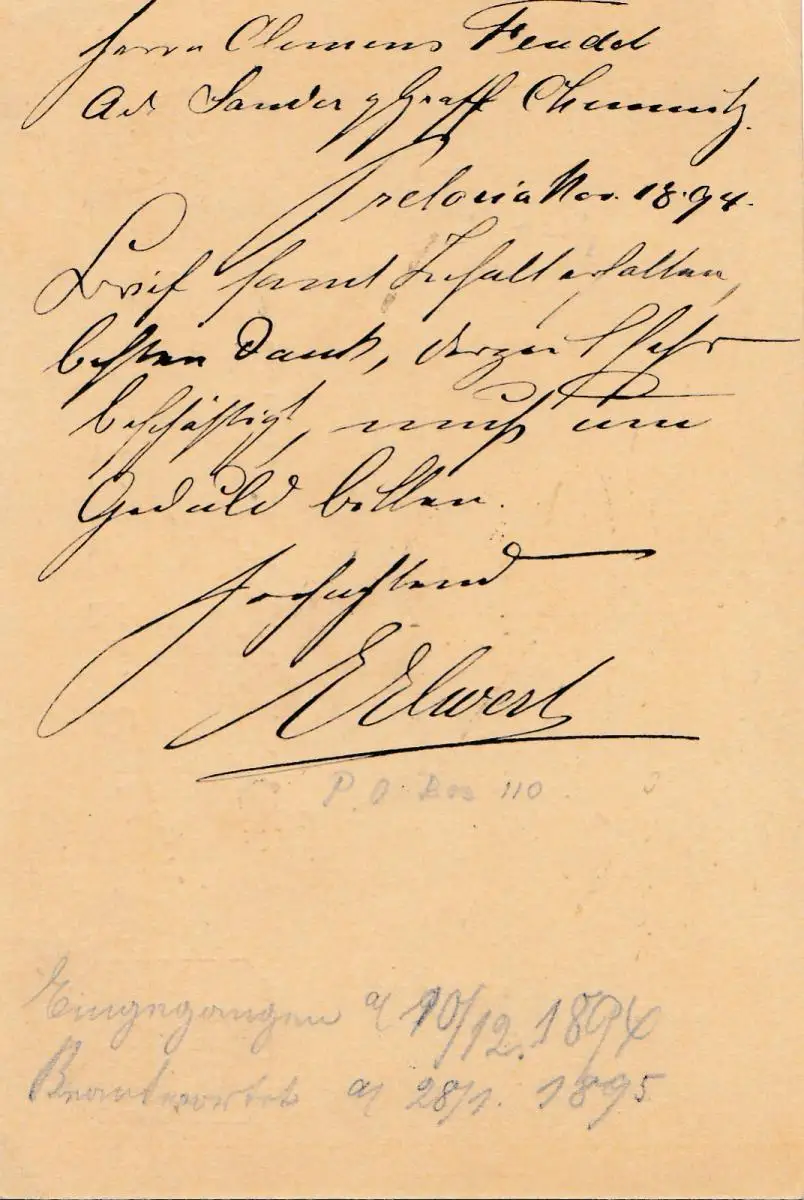 Herrn Clemens Feudel
Adr. Sander & Graff Chemnitz.
Pretoria Nov. 18. 94.
Brief samt Inhalt erhalten,
besten Dank, derzeit sehr
beschäftigt, muß um
Geduld bitten.
Hochachtend
P. O Box 110.
Eingegangen a/ 10/12. 1894
Beantwortet a/ 28/1. 1895